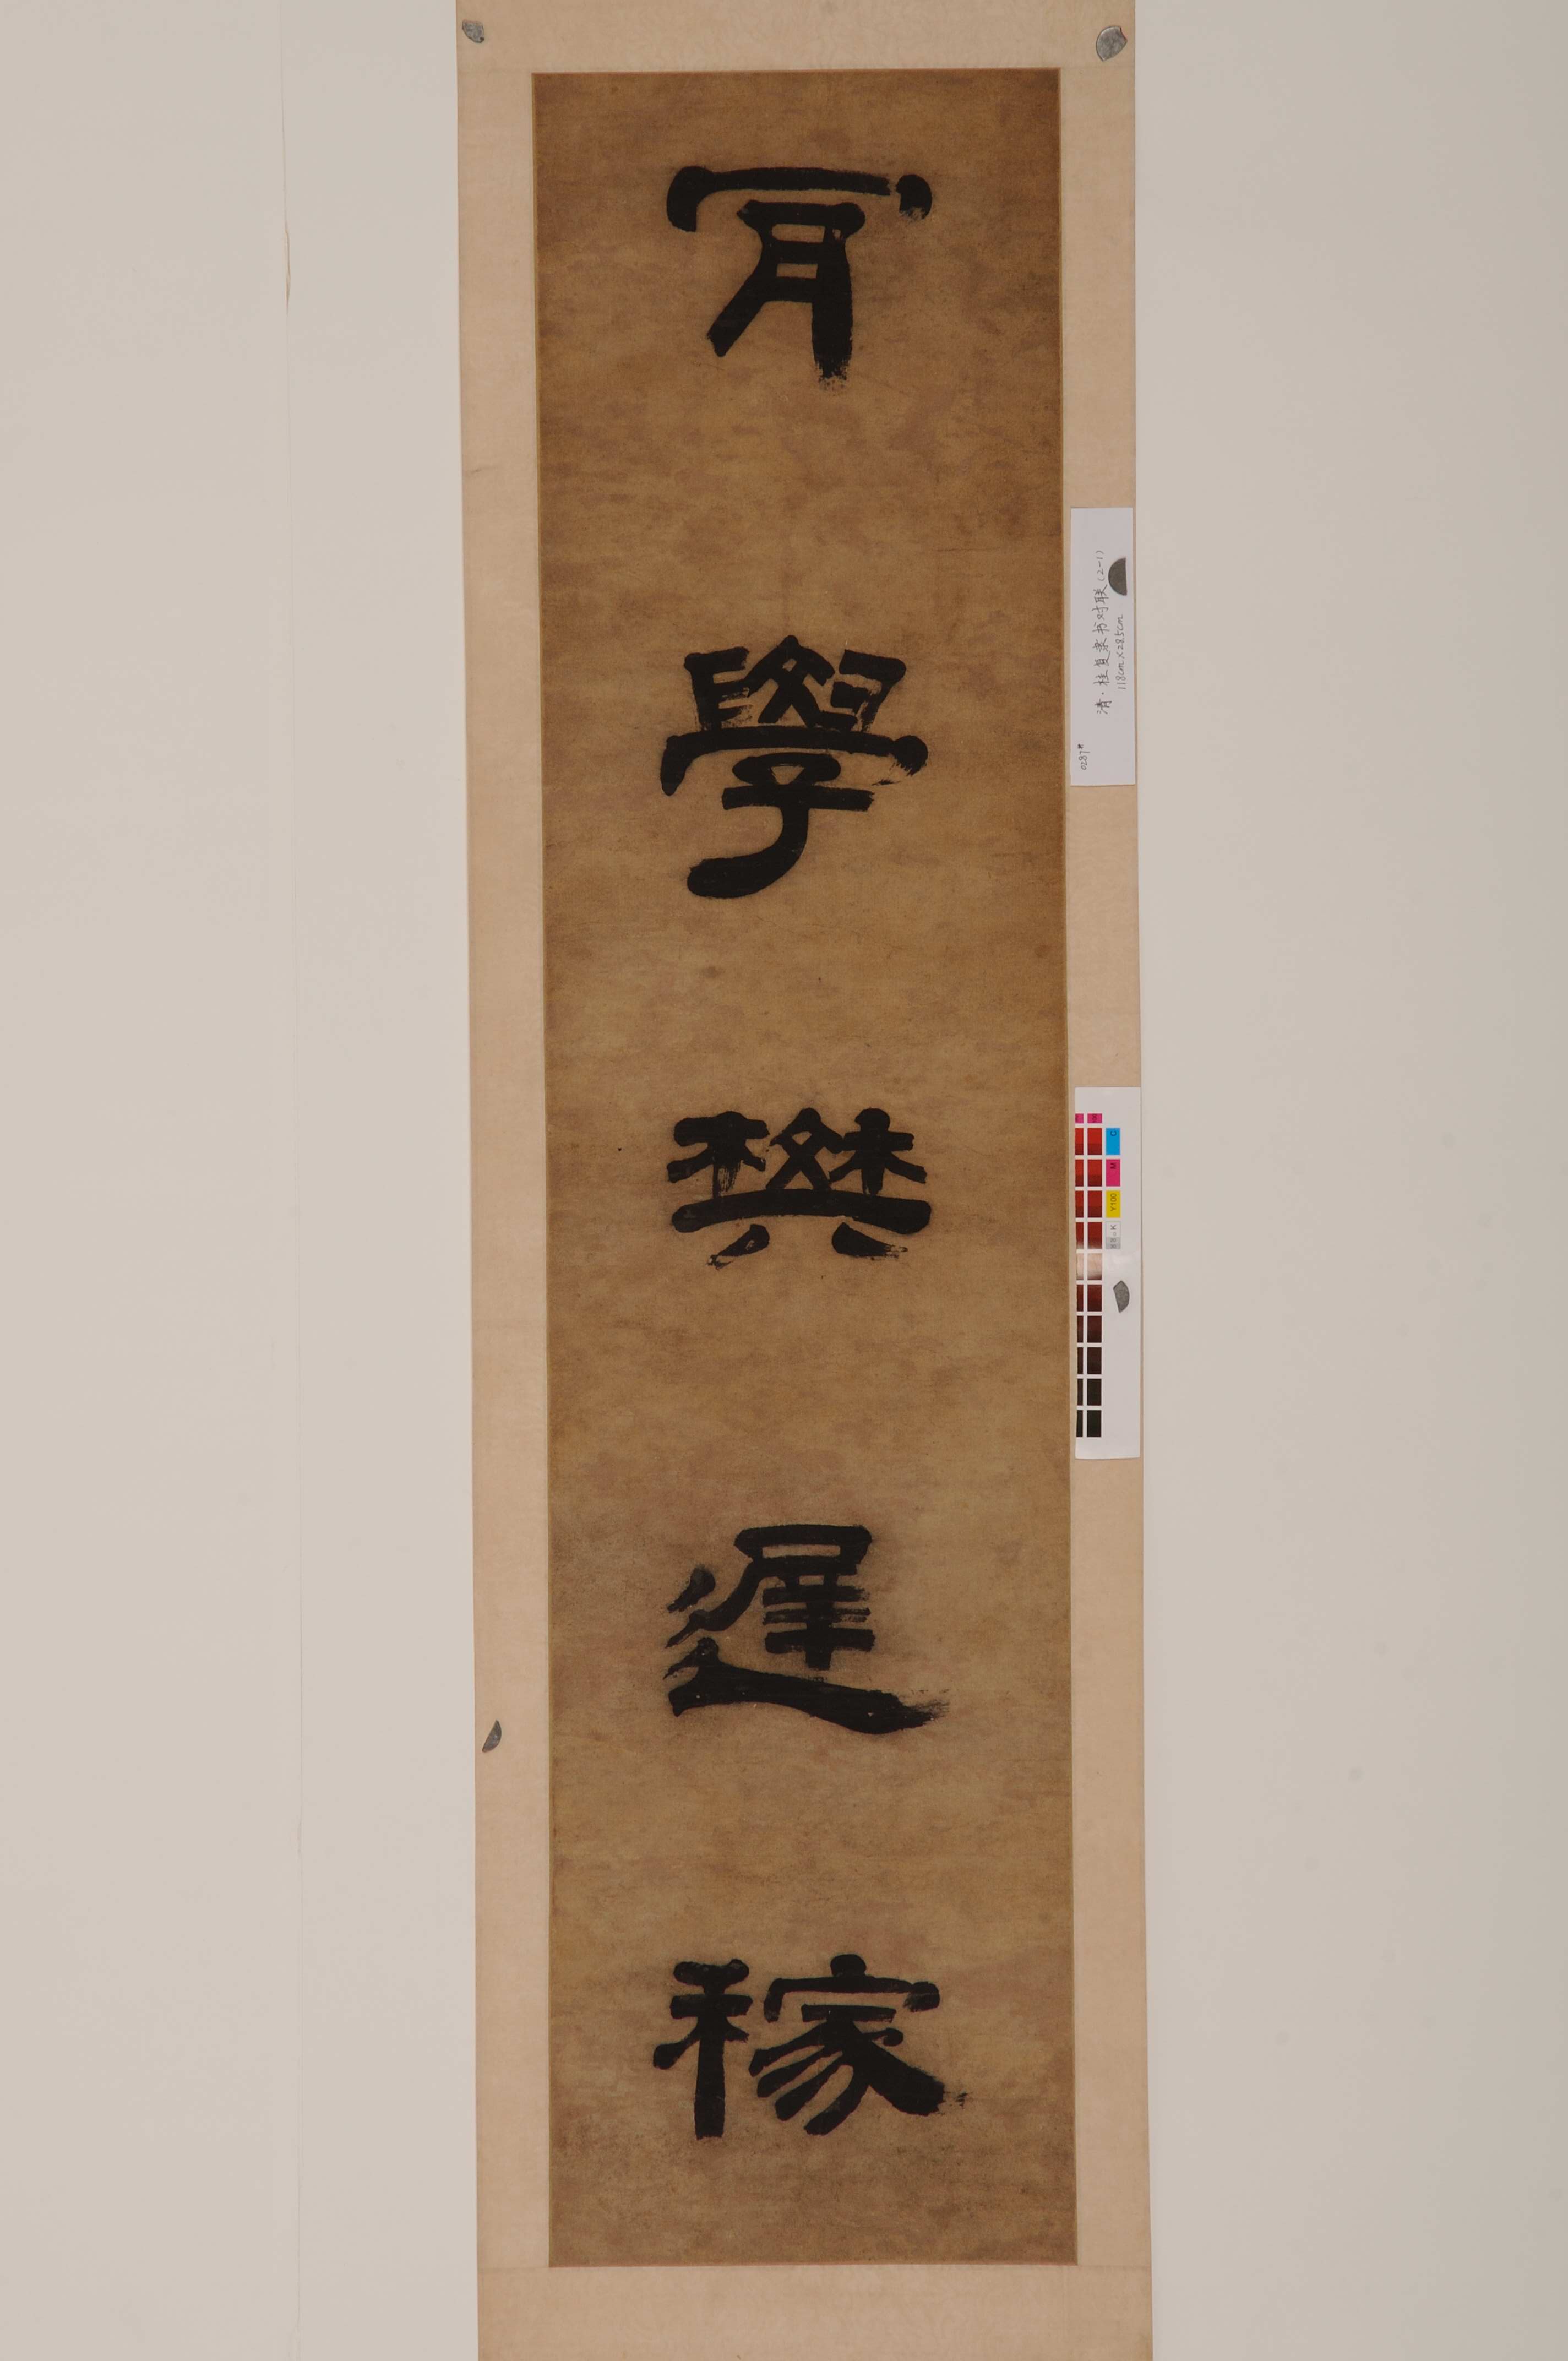 肎學樊遲稼
0287#
清·桂复隶书对联(2-1)
118cm×28.5cm
C
M
Y100
K